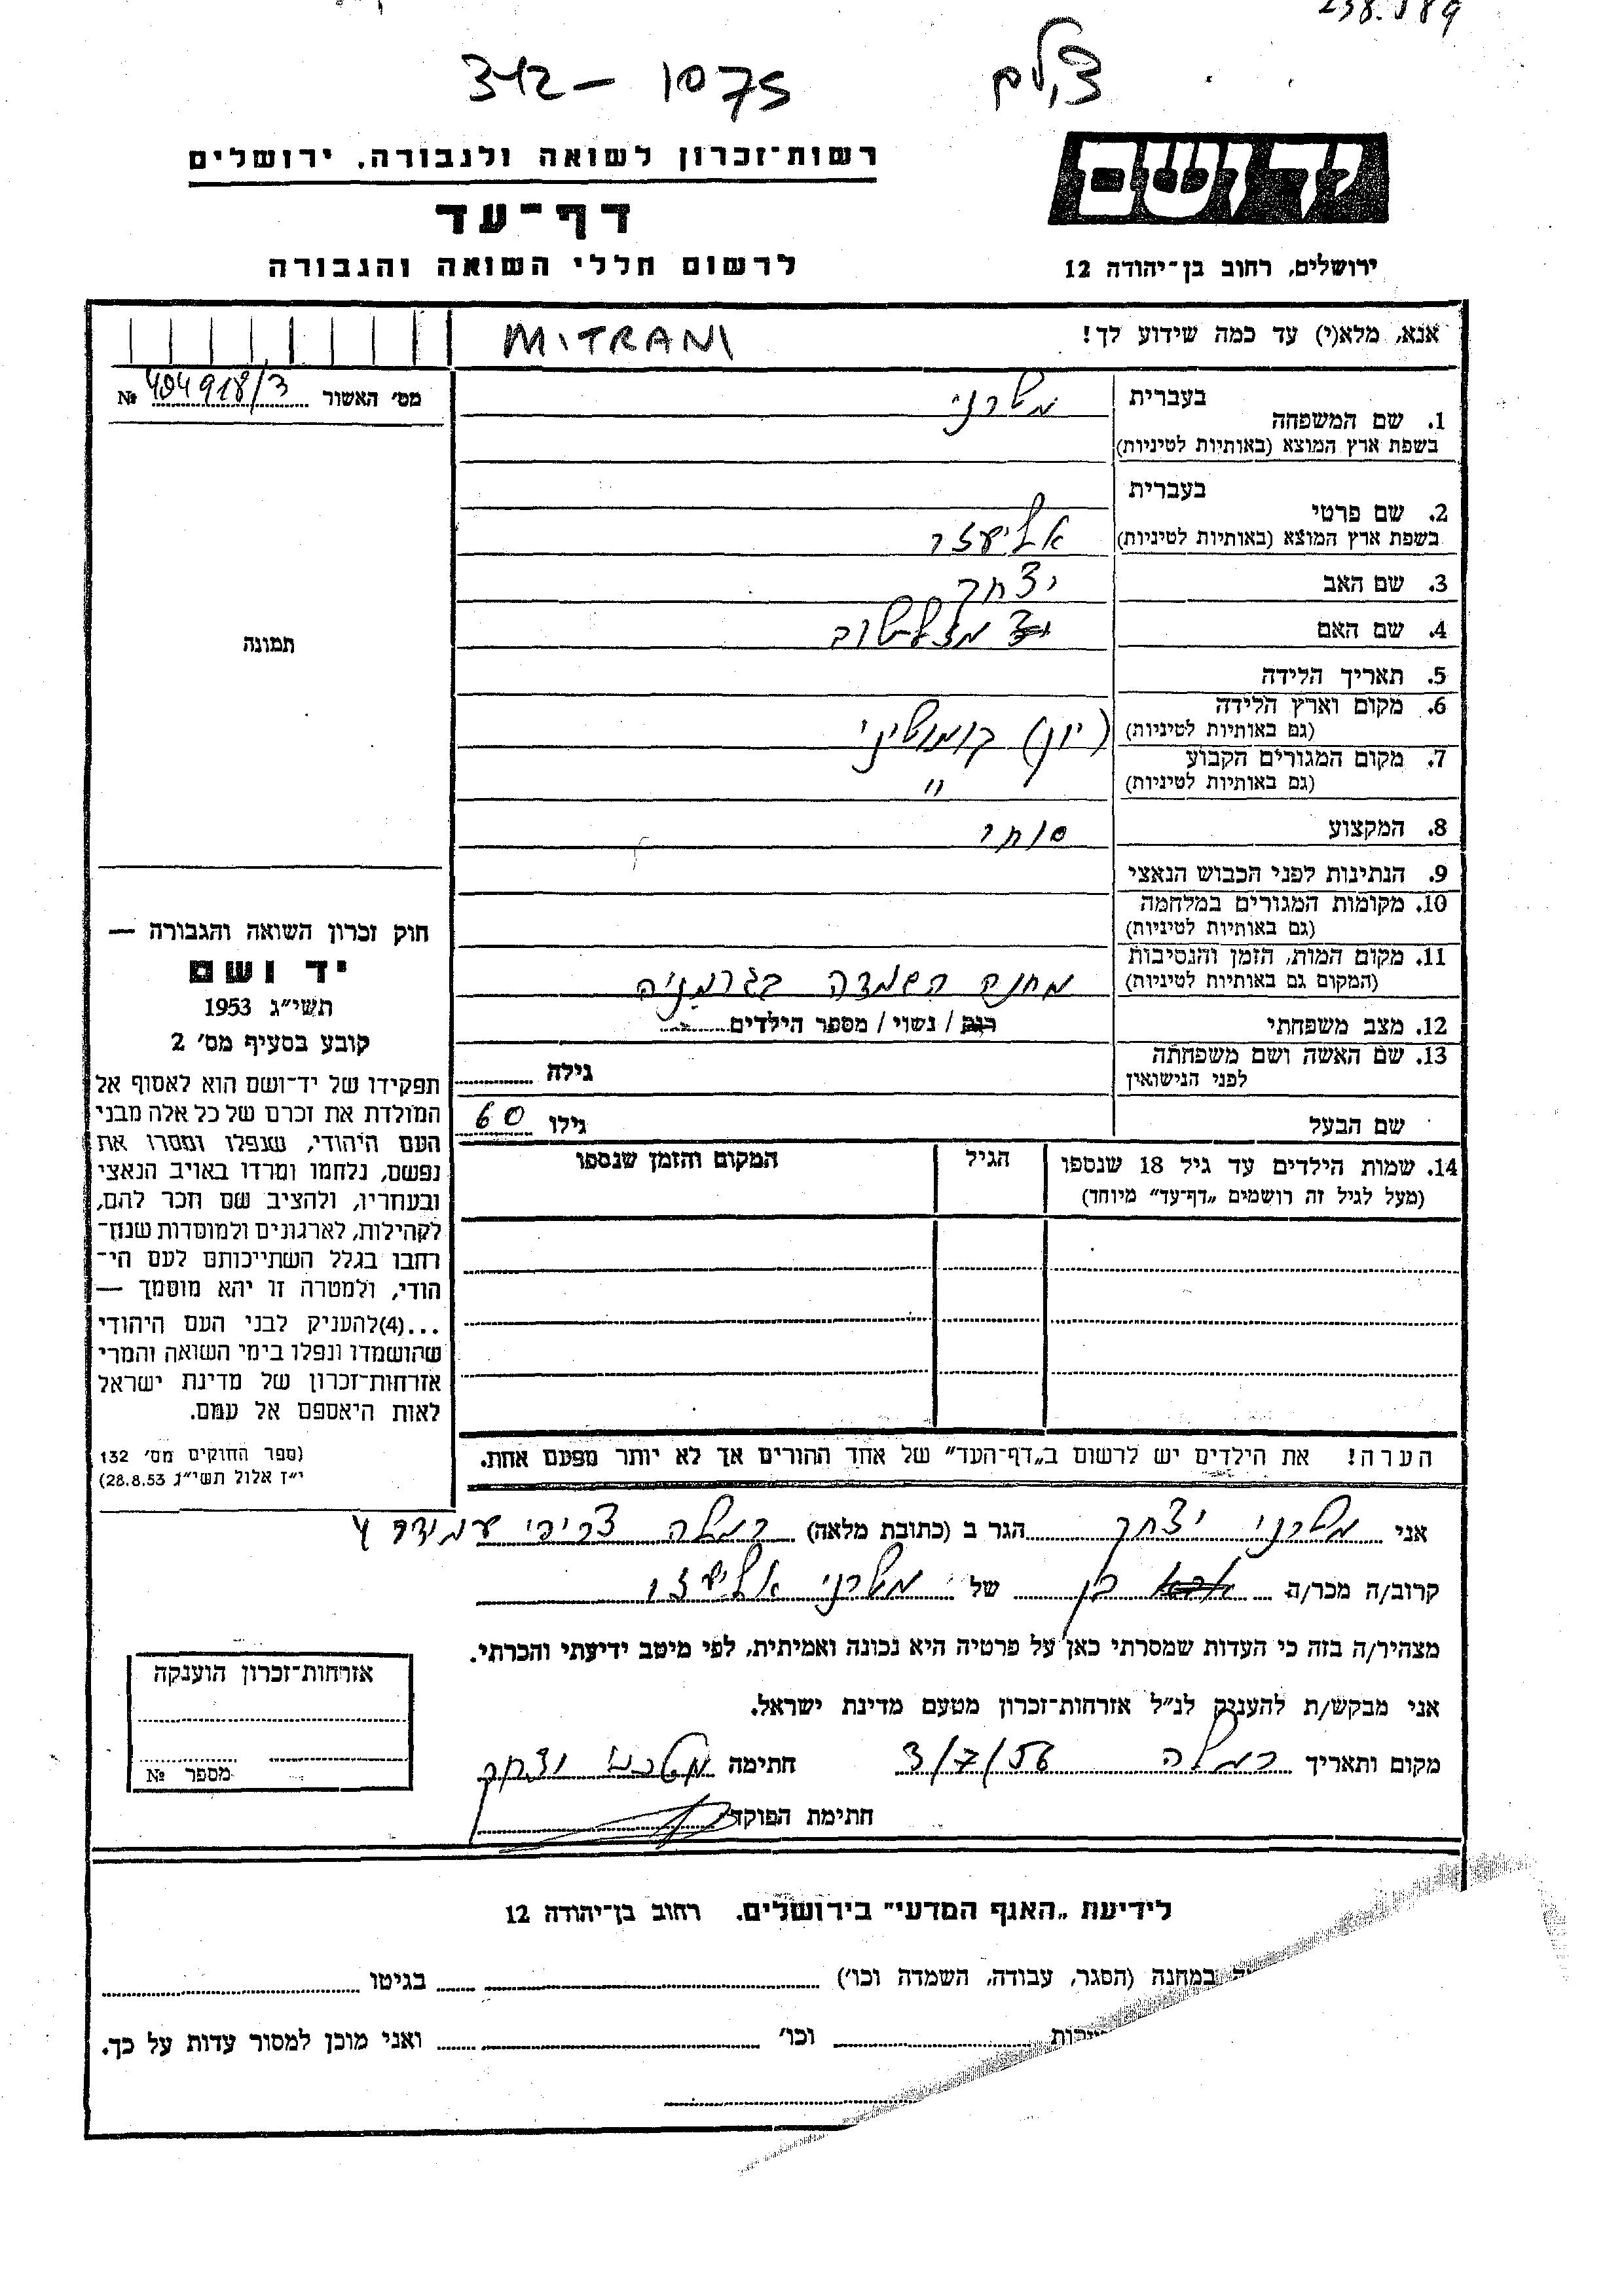 238.189
צילם
312 - 1075
יד ושם
ירושלים, רחוב בן־יהודה 12
רשות־זכרון לשואה ולגבורה, ירושלים
דף־עד
לרשום חללי השואה והגבורה
אנא, מלא(י) עד כמה שידוע לך!
MITRANI
מס׳ האשור 404918/3 №
תמונה
1. שם המשפחה בעברית מטרני
בשפת ארץ המוצא (באותיות לטיניות)
2. שם פרטי בעברית
בשפת ארץ המוצא (באותיות לטיניות) אליעזר
3. שם האב יצחק
4. שם האם מזל טוב
5. תאריך הלידה
6. מקום וארץ הלידה
(גם באותיות לטיניות) (יון) קומוטיני
7. מקום המגורים הקבוע
(גם באותיות לטיניות) "
8. המקצוע סוחר
9. הנתינות לפני הכבוש הנאצי
10. מקומות המגורים במלחמה
(גם באותיות לטיניות)
11. מקום המות, הזמן והנסיבות
(המקום גם באותיות לטיניות) מחנה השמדה בגרמניה
12. מצב משפחתי רוק / נשוי / מספר הילדים
13. שם האשה ושם משפחתה
לפני הנישואין גילה
שם הבעל גילו 60
14. שמות הילדים עד גיל 18 שנספו הגיל המקום והזמן שנספו
(מעל לגיל זה רושמים „דף־עד״ מיוחד)
הערה! את הילדים יש לרשום ב„דף־העד״ של אחד ההורים אך לא יותר מפעם אחת.
חוק זכרון השואה והגבורה —
יד ושם
תשי״ג 1953
קובע בסעיף מס׳ 2
תפקידו של יד־ושם הוא לאסוף אל
המולדת את זכרם של כל אלה מבני
העם היהודי, שנפלו ומסרו את
נפשם, נלחמו ומרדו באויב הנאצי
ובעוזריו, ולהציב שם וזכר להם,
לקהילות, לארגונים ולמוסדות שנח־
רבו בגלל השתייכותם לעם הי־
הודי, ולמטרה זו יהא מוסמך —
...(4)להעניק לבני העם היהודי
שהושמדו ונפלו בימי השואה והמרי
אזרחות־זכרון של מדינת ישראל
לאות היאספם אל עמם.
(ספר החוקים מס׳ 132
י״ז אלול תשי״ג 28.8.53)
אני מטרני יצחק הגר ב (כתובת מלאה) רמלה צריפי עמידר 4
קרוב/ה מכר/ה בן של מטרני אליעזר
מצהיר/ה בזה כי העדות שמסרתי כאן על פרטיה היא נכונה ואמיתית, לפי מיטב ידיעתי והכרתי.
אני מבקש/ת להעניק לנ״ל אזרחות־זכרון מטעם מדינת ישראל.
מקום ותאריך רמלה 3/7/56 חתימה מטרני יצחק
חתימת הפוקד
אזרחות־זכרון הוענקה
מספר №
לידיעת „האגף המדעי״ בירושלים. רחוב בן־יהודה 12
במחנה (הסגר, עבודה, השמדה וכו׳) בגיטו
וכו׳ ואני מוכן למסור עדות על כך.